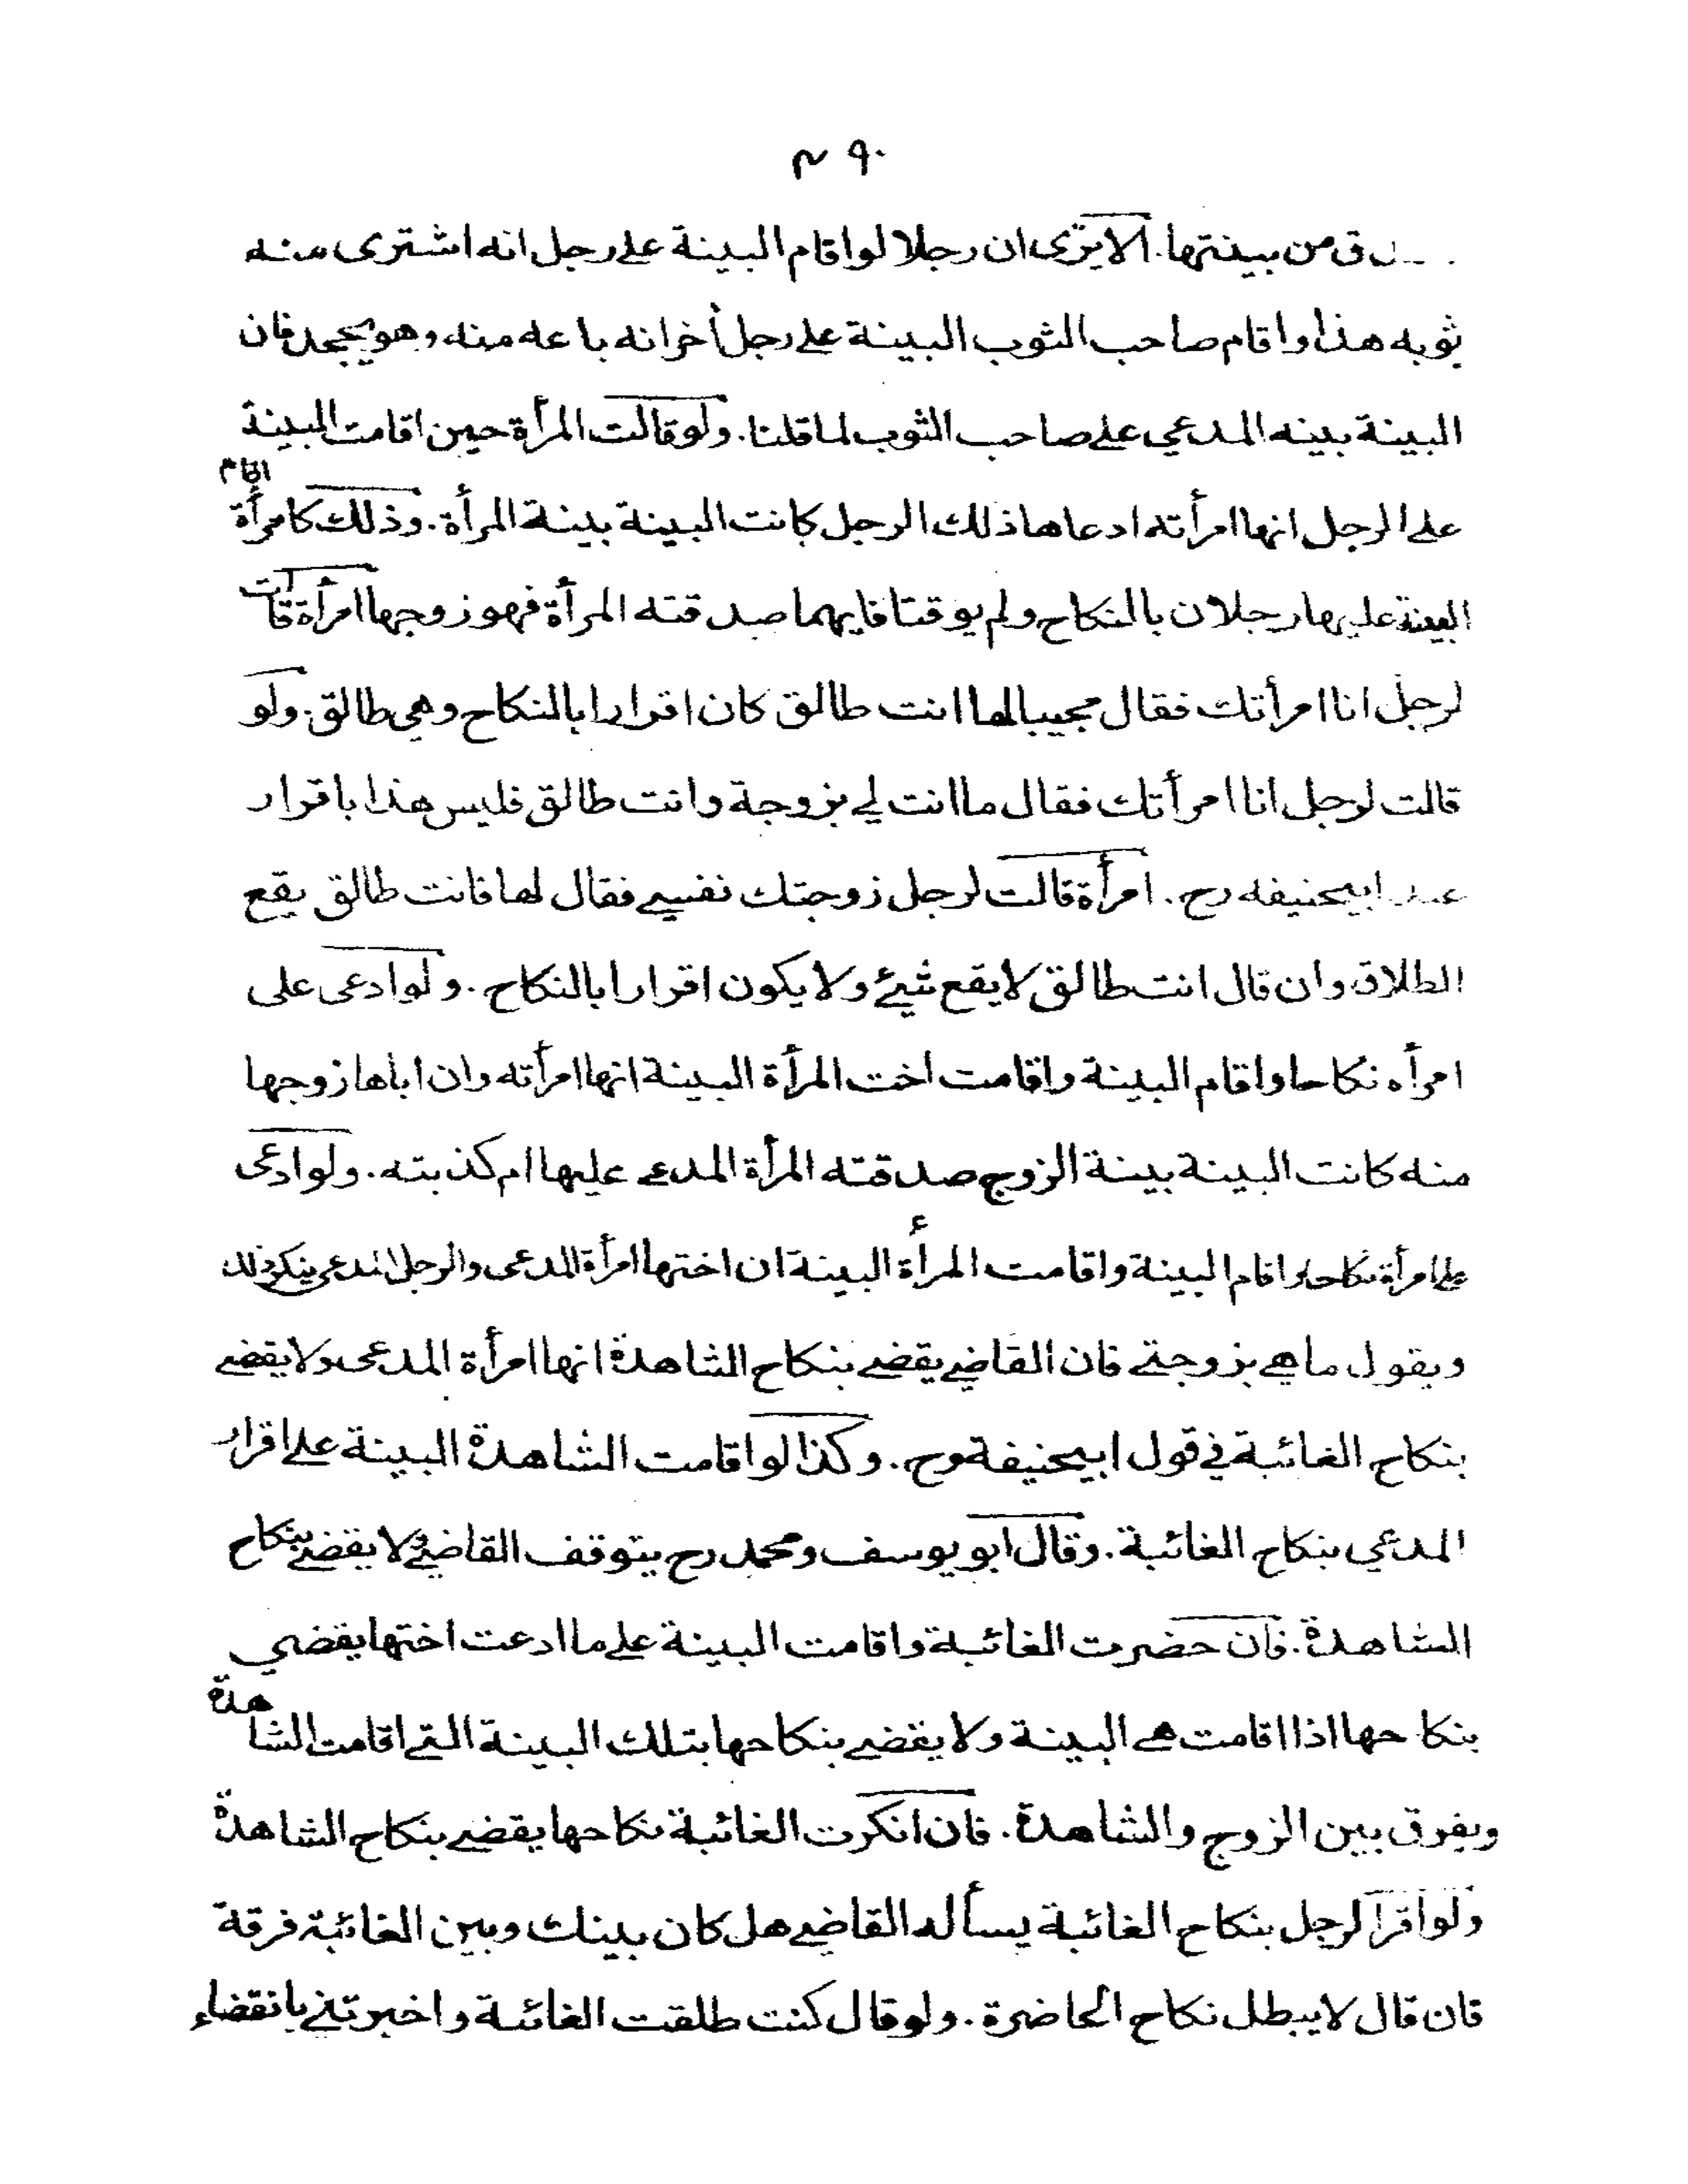 ٤٩٠
ق من بينتها. الا يرى ان رجلا لو اقام البينة على رجل انه اشترى منه
ثوبه هذا واقام صاحب الثوب البينة على رجل أخر انه باعه منه وهو يجحد فان
البينة بينه المدعي على صاحب الثوب لما قلنا. ولو قالت المرأة حين اقامت البينة
على الرجل انها امرأته ادعاها ذلك الرجل كانت البينة بينة المرأة. وذلك كامرأة اقام
البينة عليها رجلان بالنكاح ولم يوقتا فايهما صدقته المرأة فهو زوجها امرأة قالت
لرجل انا امرأتك فقال مجيبا لها انت طالق كان اقرارا بالنكاح وهي طالق. ولو
قالت لرجل انا امرأتك فقال ما انت لي بزوجة وانت طالق فليس هذا باقرار
عند ابيحنيفه رح. امرأة قالت لرجل زوجتك نفسي فقال لها فانت طالق يقع
الطلاق وان قال انت طالق لا يقع شيئ ولا يكون اقرارا بالنكاح. ولو ادعى على
امرأه نكاحا واقام البينة واقامت اخت المرأة البينة انها امرأته وان اباها زوجها
منه كانت البينة بينة الزوج صدقته المرأة المدعى عليها ام كذبته. ولو ادعى
على امرأة نكاحا واقام البينة واقامت المرأة البينة ان اختها امرأة المدعى والرجل المدعي ينكر ذلك
ويقول ما هي بزوجتي فان القاضي يقضي بنكاح الشاهدة انها امرأة المدعى ولا يقضي
بنكاح الغائبة في قول ابيحنيفة رح. وكذا لو اقامت الشاهدة البينة على اقرار
المدعي بنكاح الغائبة. وقال ابو يوسف ومحمد رح يتوقف القاضي ولا يقضي بنكاح
الشاهدة. فان حضرت الغائبة واقامت البينة على ما ادعت اختها يقضي
بنكاحها اذا اقامت هي البينة ولا يقضي بنكاحها بتلك البينة التي اقامت الشاهدة
ويفرق بين الزوج والشاهدة. فان انكرت الغائبة نكاحها يقضي بنكاح الشاهدة
ولو اقر الرجل بنكاح الغائبة يسأله القاضي هل كان بينك وبين الغائبة فرقة
فان قال لا يبطل نكاح الحاضرة. ولو قال كنت طلقت الغائبة واخبرتني بانقضاء